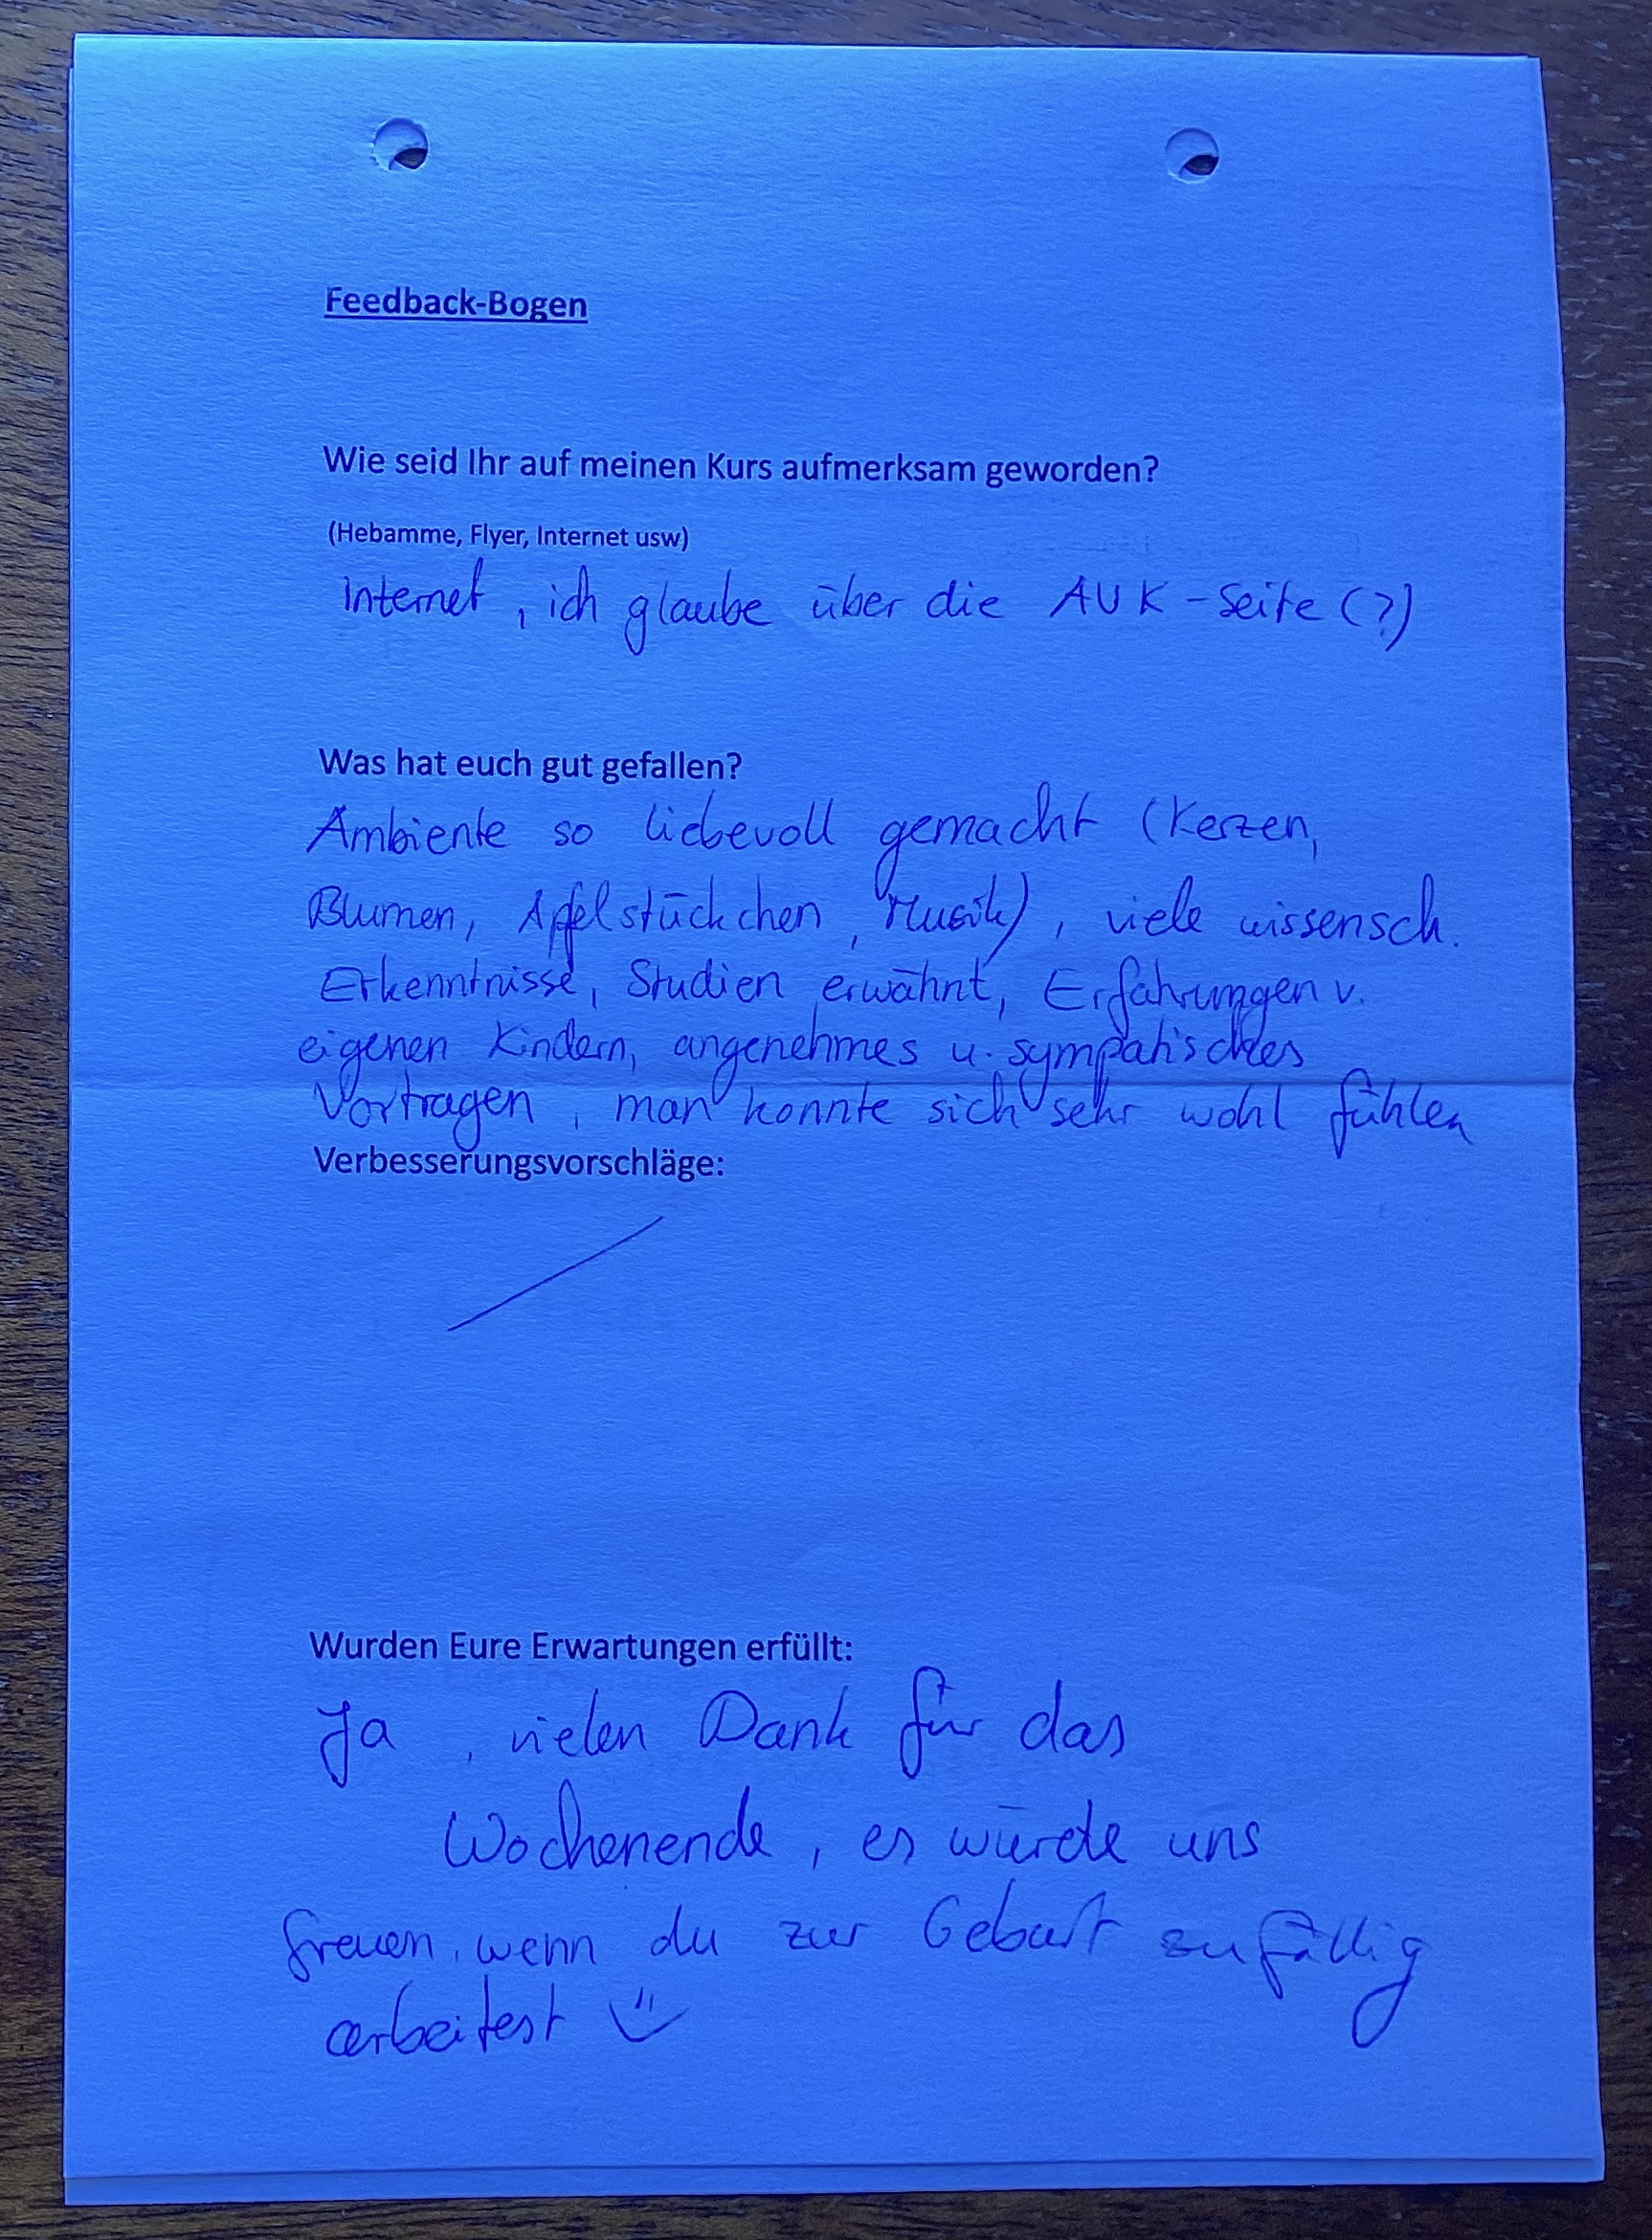 Feedback-Bogen
Wie seid Ihr auf meinen Kurs aufmerksam geworden?
(Hebamme, Flyer, Internet usw)
Internet, ich glaube über die AUK-Seite (?)
Was hat euch gut gefallen?
Ambiente so liebevoll gemacht (Kerzen,
Blumen, Apfelstückchen, Musik), viele wissensch.
Erkenntnisse, Studien erwähnt, Erfahrungen v.
eigenen Kindern, angenehmes u. sympatisches
Vortragen, man konnte sich sehr wohl fühlen
Verbesserungsvorschläge:
Wurden Eure Erwartungen erfüllt:
Ja, vielen Dank für das
Wochenende, es würde uns
freuen, wenn du zur Geburt zufällig
arbeitest